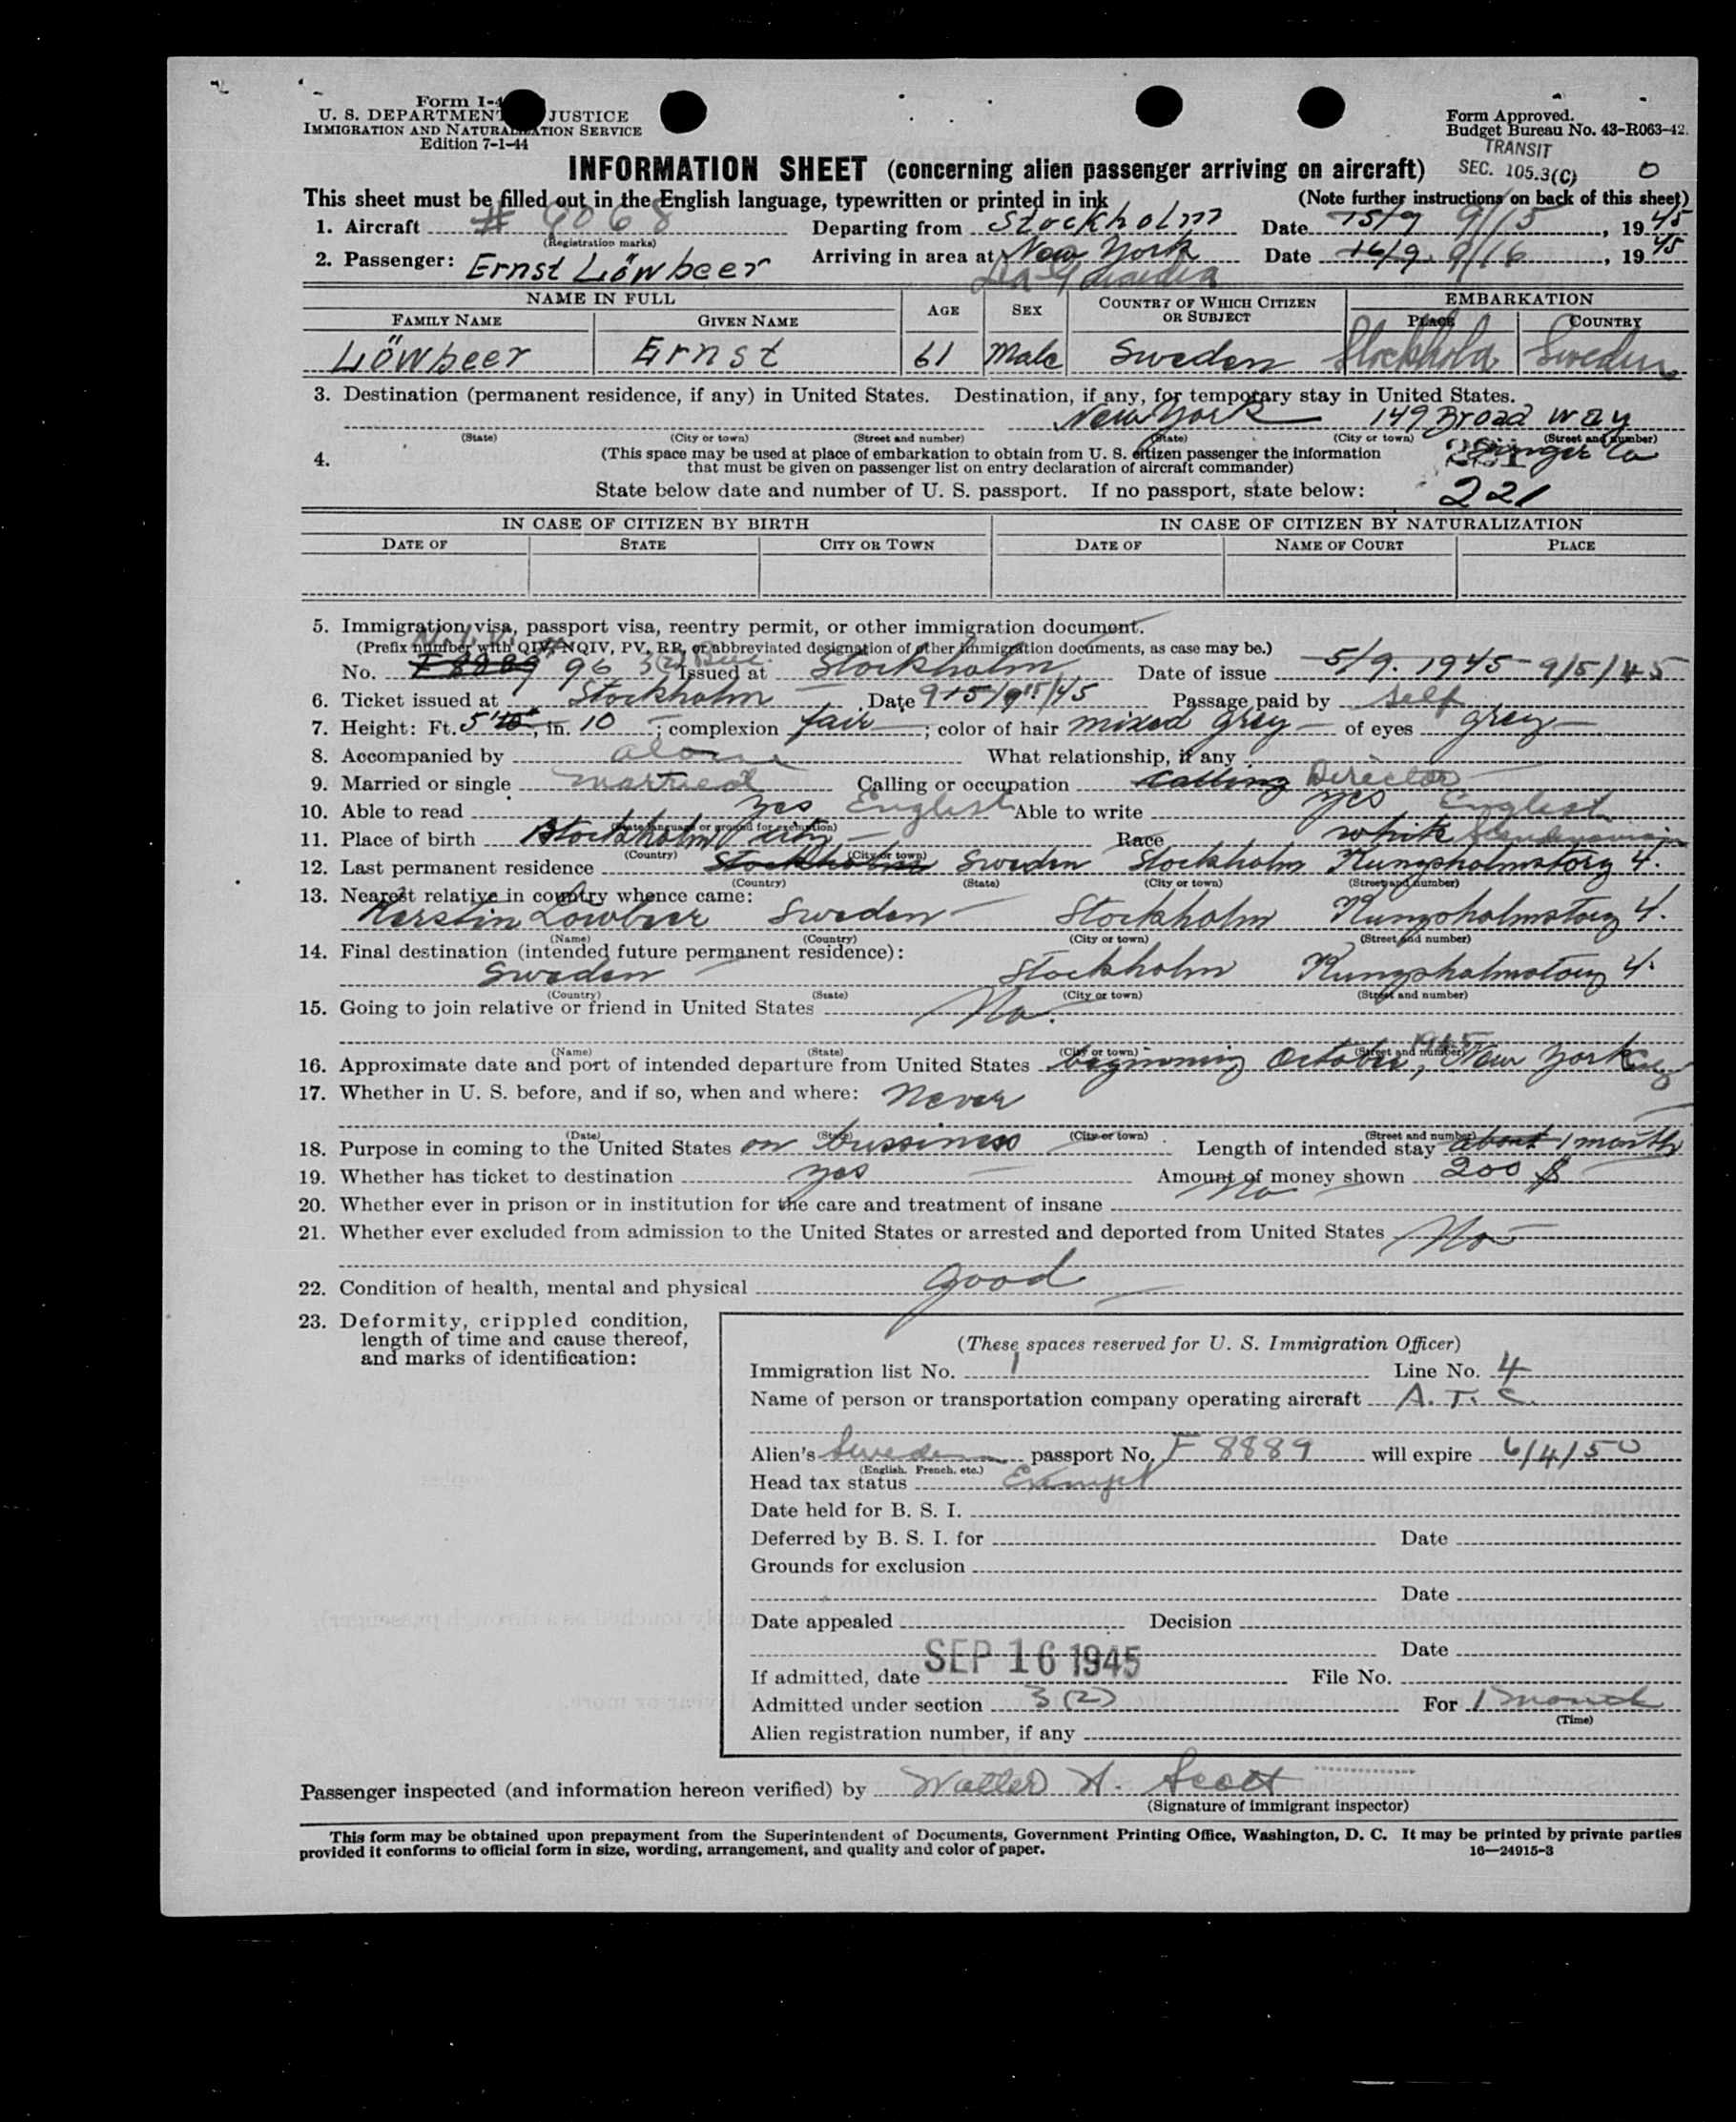 Form I-4
U. S. DEPARTMENT JUSTICE
IMMIGRATION AND NATURALIZATION SERVICE
Edition 7-1-44
Form Approved.
Budget Bureau No. 43-R063-42.
TRANSIT
SEC. 105.3(C) 0
INFORMATION SHEET (concerning alien passenger arriving on aircraft)
This sheet must be filled out in the English language, typewritten or printed in ink (Note further instructions on back of this sheet)
1. Aircraft # 9068 Departing from Stockholm Date 15/9 9/15, 1945
(Registration marks)
2. Passenger: Ernst Löwbeer Arriving in area at New York Date 16/9 9/16, 1945
La Guardia
NAME IN FULL AGE SEX COUNTRY OF WHICH CITIZEN OR SUBJECT EMBARKATION
FAMILY NAME GIVEN NAME PLACE COUNTRY
Löwbeer Ernst 61 Male Sweden Stockholm Sweden
3. Destination (permanent residence, if any) in United States. Destination, if any, for temporary stay in United States.
New York 149 Broad way
(State) (City or town) (Street and number) (State) (City or town) (Street and number)
Singer Co
4. (This space may be used at place of embarkation to obtain from U. S. citizen passenger the information
that must be given on passenger list on entry declaration of aircraft commander)
State below date and number of U. S. passport. If no passport, state below: 221
IN CASE OF CITIZEN BY BIRTH IN CASE OF CITIZEN BY NATURALIZATION
DATE OF STATE CITY OR TOWN DATE OF NAME OF COURT PLACE
5. Immigration visa, passport visa, reentry permit, or other immigration document.
(Prefix number with QIV, NQIV, PV, RP, or abbreviated designation of other immigration documents, as case may be.)
No. F 8889 96 3(2) Issued at Stockholm Date of issue 5/9. 1945 9/5/45
6. Ticket issued at Stockholm Date 9/15/45 Passage paid by self
7. Height: Ft. 5', in. 10; complexion fair; color of hair mixed grey of eyes grey
8. Accompanied by alone What relationship, if any
9. Married or single married Calling or occupation calling Director
10. Able to read yes English Able to write yes English
(State language or ground for exemption)
11. Place of birth Stockholm city Race white Scandinavian
(Country) (City or town)
12. Last permanent residence Stockholm Sweden Stockholm Kungsholmstorg 4.
(Country) (State) (City or town) (Street and number)
13. Nearest relative in country whence came:
Kerstin Löwbeer Sweden Stockholm Kungsholmstorg 4.
(Name) (Country) (City or town) (Street and number)
14. Final destination (intended future permanent residence):
Sweden Stockholm Kungsholmstorg 4.
(Country) (State) (City or town) (Street and number)
15. Going to join relative or friend in United States No.
(Name) (State) (City or town) (Street and number)
16. Approximate date and port of intended departure from United States beginning October, 1945 New York City
17. Whether in U. S. before, and if so, when and where: Never
(Date) (State) (City or town) (Street and number)
18. Purpose in coming to the United States on bussiness Length of intended stay about 1 month
19. Whether has ticket to destination yes Amount of money shown 200 $
20. Whether ever in prison or in institution for the care and treatment of insane No
21. Whether ever excluded from admission to the United States or arrested and deported from United States No
22. Condition of health, mental and physical good
23. Deformity, crippled condition,
length of time and cause thereof,
and marks of identification:
(These spaces reserved for U. S. Immigration Officer)
Immigration list No. 1 Line No. 4
Name of person or transportation company operating aircraft A. T. C.
Alien's Sweden passport No. F 8889 will expire 6/4/50
(English, French, etc.)
Head tax status Exempt
Date held for B. S. I.
Deferred by B. S. I. for Date
Grounds for exclusion
Date
Date appealed Decision
Date
If admitted, date SEP 16 1945 File No.
Admitted under section 3(2) For 1 month
(Time)
Alien registration number, if any
Passenger inspected (and information hereon verified) by Walter H. Scott
(Signature of immigrant inspector)
This form may be obtained upon prepayment from the Superintendent of Documents, Government Printing Office, Washington, D. C. It may be printed by private parties
provided it conforms to official form in size, wording, arrangement, and quality and color of paper. 16—24915-3